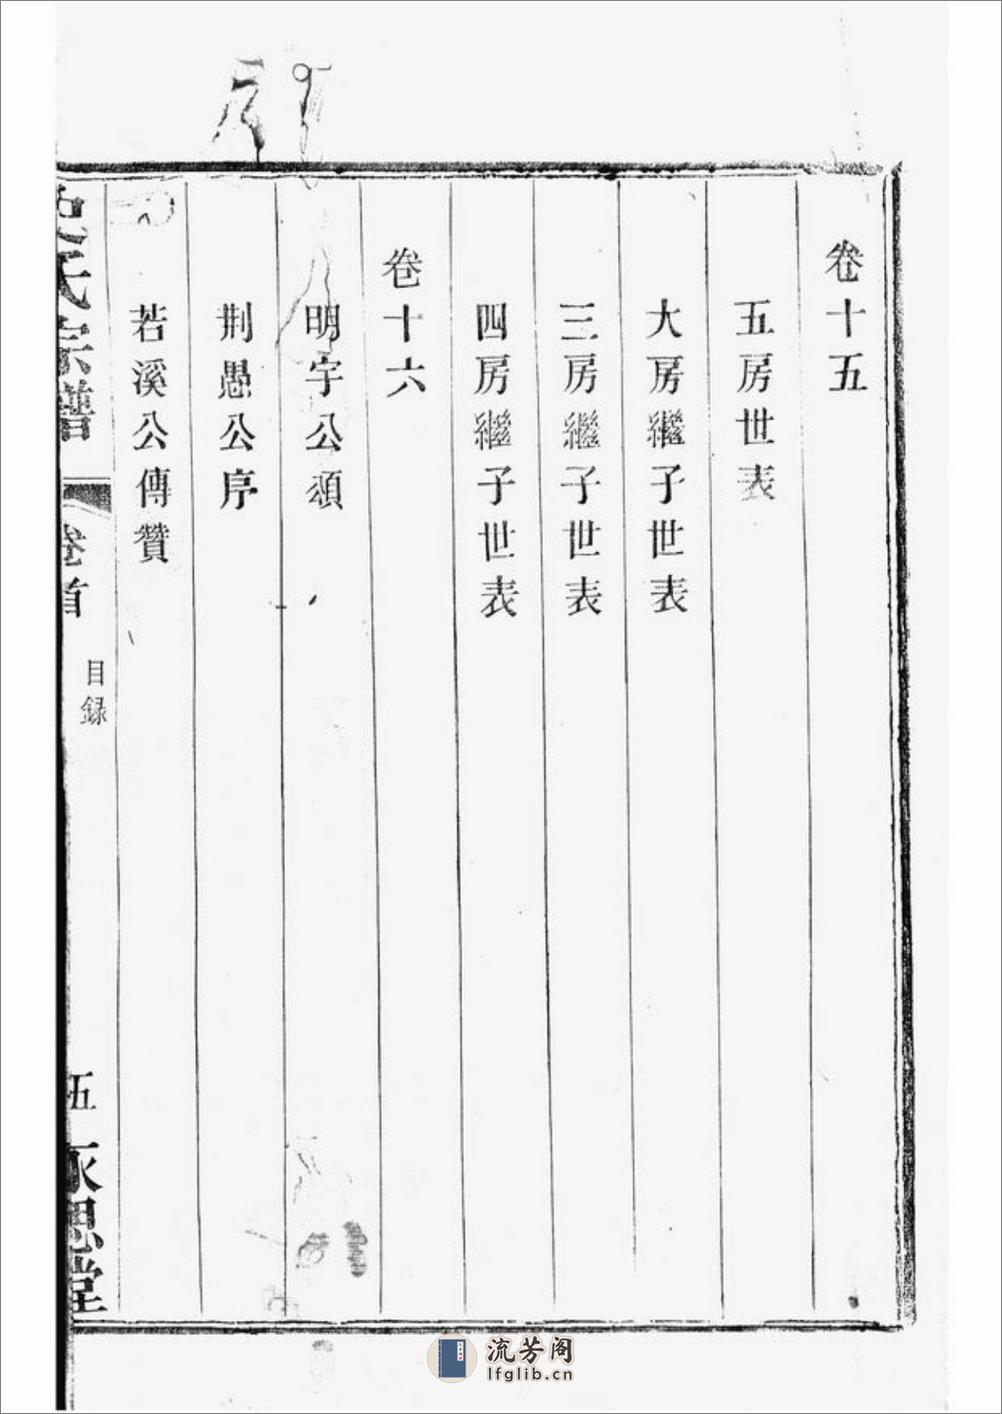 卷十五
五房世表
大房繼子世表
三房繼子世表
四房繼子世表
卷十六
明宇公頌
荆愚公序
若溪公傳贊
氏宗譜
卷首
目録
伍
思堂
流芳阁
lfglib.cn